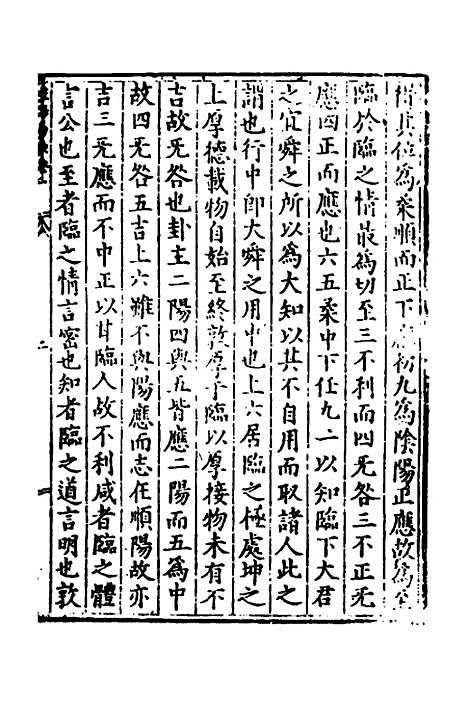 得其位為柔順而正下應初九為陰陽正應故為至
臨於臨之情最為切至三不利而四旡咎三不正旡
應四正而應也六五柔中下任九二以知臨下大君
之宜舜之所以為大知以其不自用而取諸人此之
謂也行中即大舜之用中也上六居臨之極處坤之
上厚德載物自始至終敦厚乎臨以厚接物未有不
吉故旡咎也卦主二陽四與五皆應二陽而五為中
故四旡咎五吉上六雖不與陽應而志在順陽故亦
吉三旡應而不中正以甘臨人故不利咸者臨之體
言公也至者臨之情言密也知者臨之道言明也敦